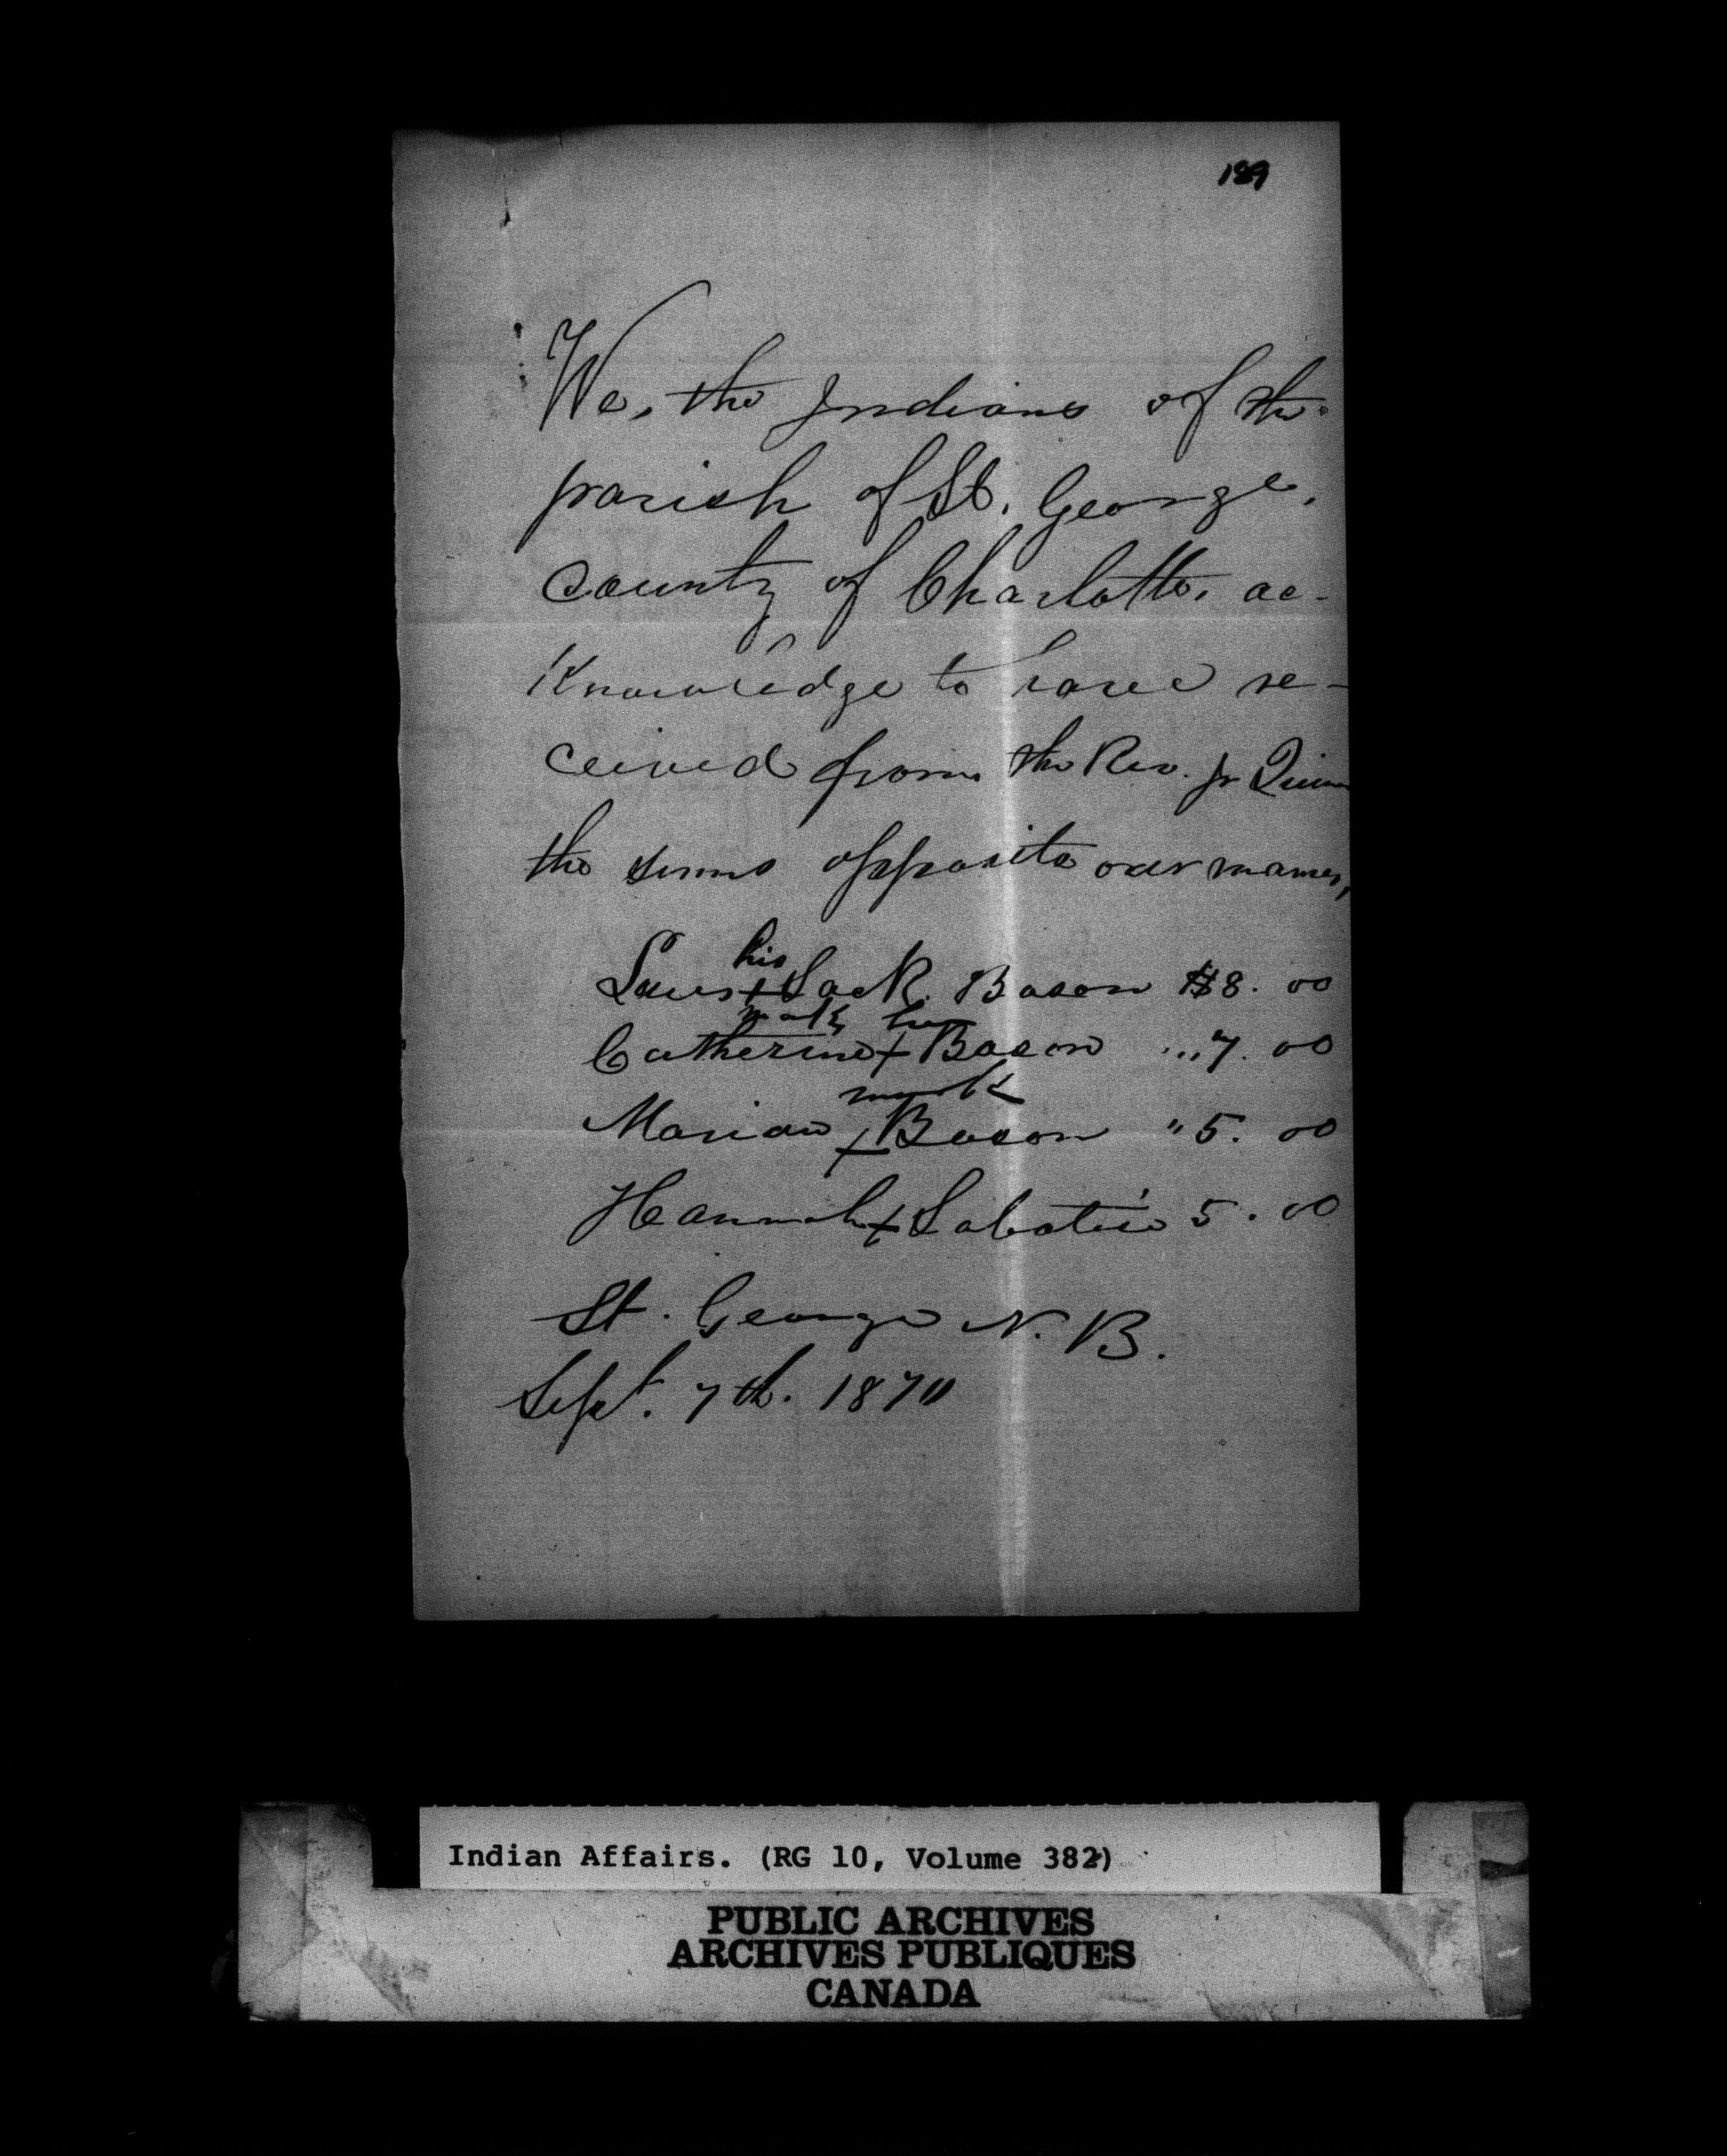 189
We, the Indians of the
parish of St. George,
County of Charlotte, ac-
Knowledge to have re-
ceived from the Rev. Jr Quinn
the sums opposite our names,
his
Louis + Sack Bason $8.00
mark her
Catherine + Bason ... 7.00
mark
Marian + Bason " 5.00
Hannah + Sabatis 5.00
St. George N. B.
Sept. 7th. 1870
Indian Affairs. (RG 10, Volume 382)
PUBLIC ARCHIVES
ARCHIVES PUBLIQUES
CANADA